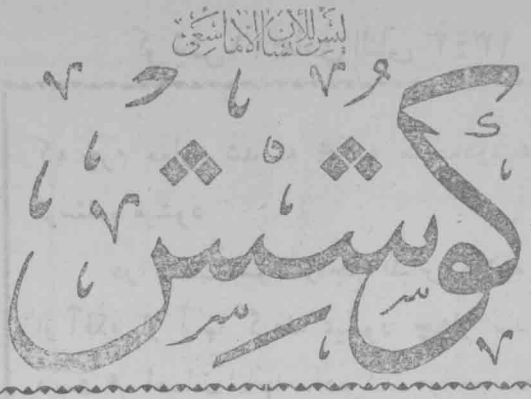 لیس للأنسان الا ما سعی
کوشش